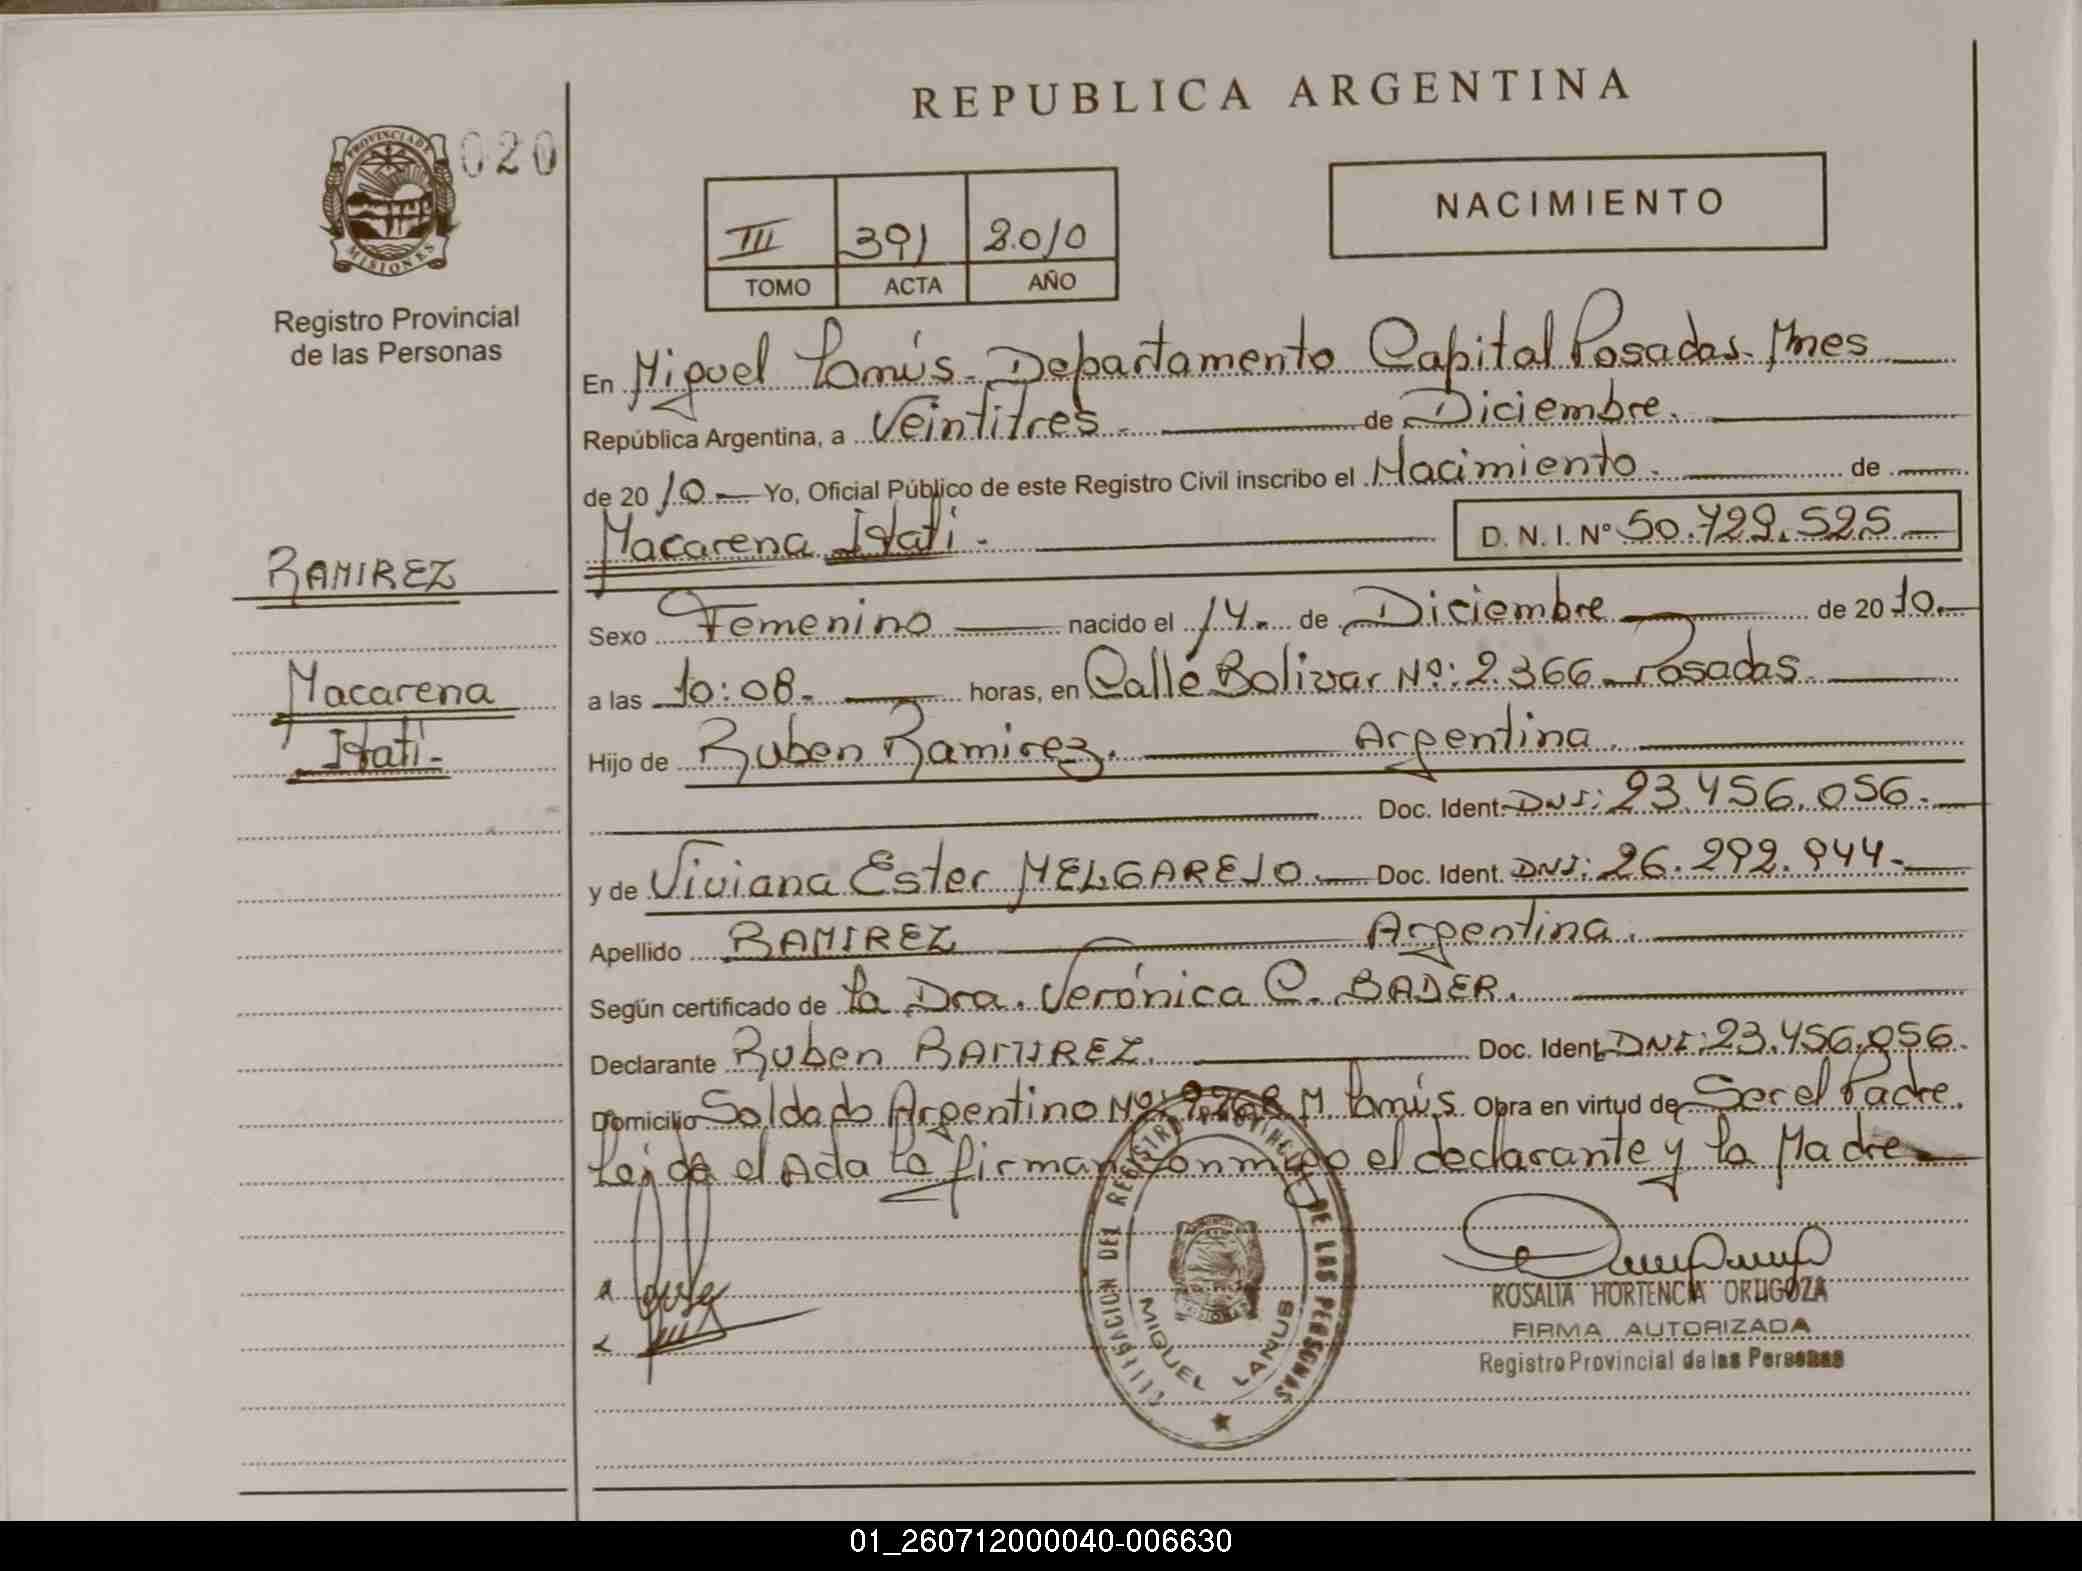 REPUBLICA ARGENTINA
PROVINCIA DE
MISIONES
020
Registro Provincial
de las Personas
III 391 2.010
TOMO ACTA AÑO
NACIMIENTO
RAMIREZ
Macarena
Itatí.-
En Miguel Lanús - Departamento Capital Posadas - Mnes
República Argentina, a Veintitres.- de Diciembre.
de 20 10.- Yo, Oficial Público de este Registro Civil inscribo el Nacimiento. de
Macarena Itatí.- D. N. I. Nº 50.729.525
Sexo Femenino nacido el 14.- de Diciembre de 20 10.-
a las 10:08.- horas, en Calle Bolivar Nº: 2.366 - Posadas
Hijo de Ruben Ramirez. Argentina.
Doc. Ident. DNI: 23.456.056.-
y de Viviana Ester MELGAREJO.- Doc. Ident. DNI: 26.292.944.-
Apellido RAMIREZ Argentina.
Según certificado de La Dra. Verónica C. BADER.
Declarante Ruben RAMIREZ. Doc. Ident. DNI: 23.456.056.
Domicilio Soldado Argentino Nº: M. Lanús. Obra en virtud de Ser el Padre.
Leída el Acta La firman conmigo el declarante y la Madre
DELEGACION DEL REGISTRO PROVINCIAL DE LAS PERSONAS
MIGUEL LANUS
ROSALIA HORTENCIA ORTIGOZA
FIRMA AUTORIZADA
Registro Provincial de las Personas
01_260712000040-006630